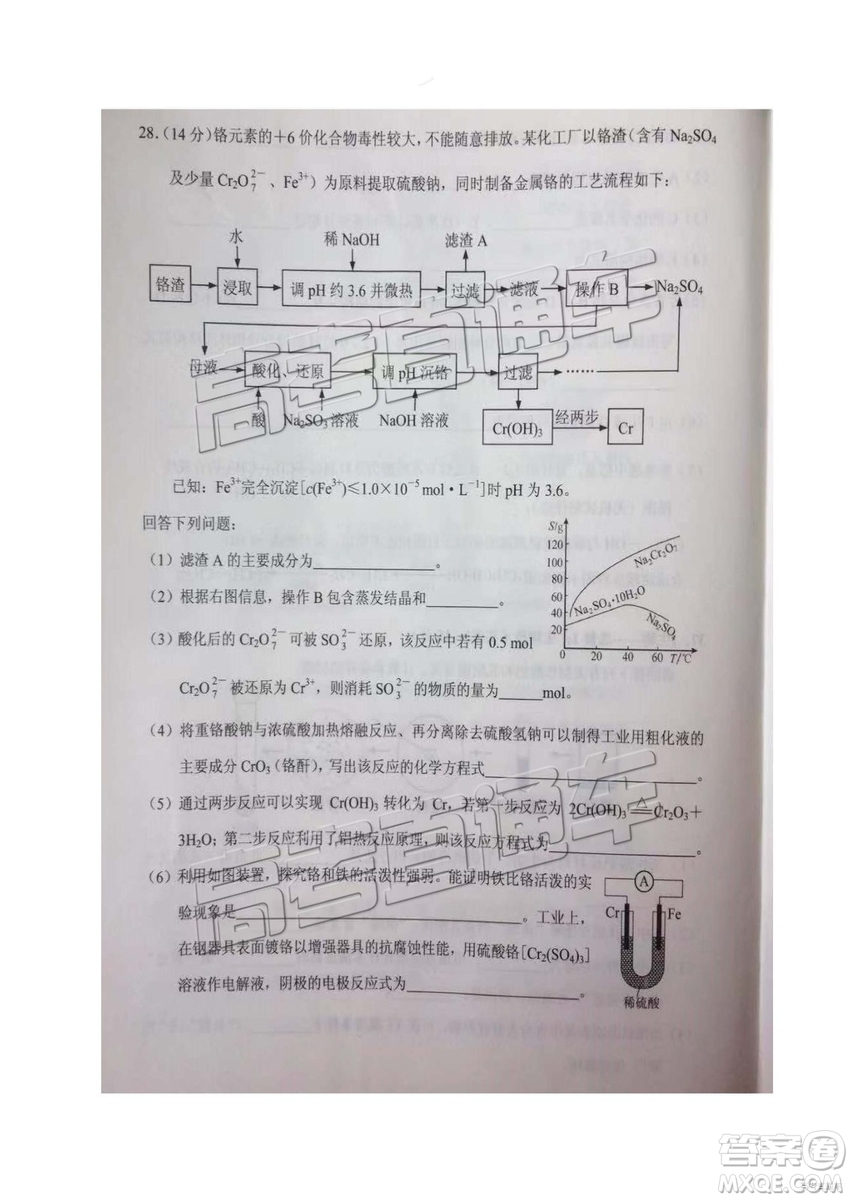 28.(14 分)铬元素的+6 价化合物毒性较大,不能随意排放。某化工厂以铬渣(含有 Na₂SO₄
及少量 Cr₂O₇²⁻、Fe³⁺)为原料提取硫酸钠,同时制备金属铬的工艺流程如下:
水 稀 NaOH 滤渣 A
铬渣 浸取 调 pH 约 3.6 并微热 过滤 滤液 操作 B Na₂SO₄
母液 酸化、还原 调 pH 沉铬 过滤 ……
酸 Na₂SO₃ 溶液 NaOH 溶液 Cr(OH)₃ 经两步 Cr
已知:Fe³⁺完全沉淀[c(Fe³⁺)≤1.0×10⁻⁵ mol·L⁻¹]时 pH 为 3.6。
回答下列问题:
(1)滤渣 A 的主要成分为________。
(2)根据右图信息,操作 B 包含蒸发结晶和________。
(3)酸化后的 Cr₂O₇²⁻ 可被 SO₃²⁻ 还原,该反应中若有 0.5 mol
Cr₂O₇²⁻ 被还原为 Cr³⁺,则消耗 SO₃²⁻ 的物质的量为____mol。
S/g
120
100
80
60
40
20
0 20 40 60 T/℃
Na₂Cr₂O₇
Na₂SO₄·10H₂O
Na₂SO₄
(4)将重铬酸钠与浓硫酸加热熔融反应、再分离除去硫酸氢钠可以制得工业用粗化液的
主要成分 CrO₃(铬酐),写出该反应的化学方程式________。
(5)通过两步反应可以实现 Cr(OH)₃ 转化为 Cr,若第一步反应为 2Cr(OH)₃ ≜ Cr₂O₃+
3H₂O;第二步反应利用了铝热反应原理,则该反应方程式为________。
(6)利用如图装置,探究铬和铁的活泼性强弱。能证明铁比铬活泼的实
验现象是________。工业上,
在钢器具表面镀铬以增强器具的抗腐蚀性能,用硫酸铬[Cr₂(SO₄)₃]
溶液作电解液,阴极的电极反应式为________。
A
Cr Fe
稀硫酸
高考直通车
高考直通车
答案圈
MXQE.COM